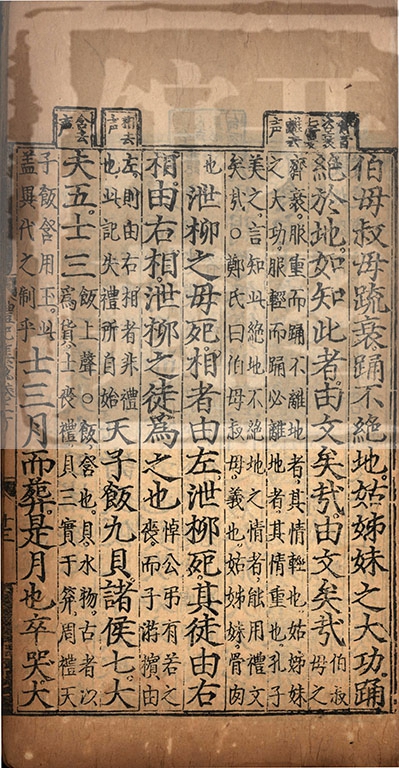 離去
声
相去
声
含去
声
伯母叔母疏衰踊不絕地姑姊妹之大功踊
絕於地如知此者由文矣哉由文矣哉
伯叔
母之
齊衰服重而踊不離地者其情輕也姑姊妹
之大功服輕而踊必離地者其情重也孔子
美之言知此絕地不絕地之情者能用禮文
矣哉○鄭氏曰伯母叔母義也姑姊妹骨肉
也
泄柳之母死相者由左泄柳死其徒由右
相由右相泄柳之徒爲之也
悼公弔有若之
喪而子游擯由
左則由右相者非禮
也此記失禮所自始
天子飯九貝諸侯七大
夫五士三
飯上聲○飯含也貝水物古者以
爲貨士喪禮貝三實于笲周禮天
子飯含用玉此
蓋異代之制乎
士三月而葬是月也卒哭大